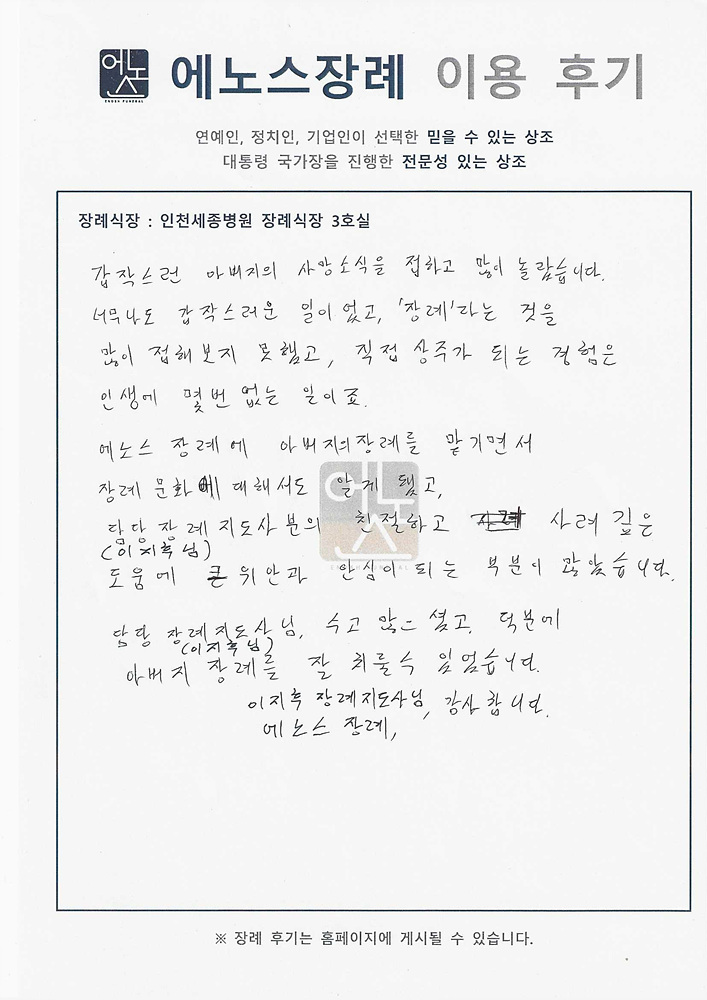 에노스
ENOS FUNERAL
에노스장례 이용 후기
연예인, 정치인, 기업인이 선택한 믿을 수 있는 상조
대통령 국가장을 진행한 전문성 있는 상조
장례식장 : 인천세종병원 장례식장 3호실
갑작스런 아버지의 사망소식을 접하고 많이 놀람습니다.
너무나도 갑작스러운 일이 였고, '장례'라는 것을
많이 접해보지 못햄고, 직접 상주가 되는 경험은
인생에 몇번 없는 일이죠.
에노스 장례에 아버지의 장례를 맡기면서
장례 문화에 대해서도 알게 됐고,
담당 장례지도사분의 친절하고 사려 깊은
(이지후님)
도움에 큰 위안과 안심이 되는 부분이 많았습니다.
담당 장례지도사님, 수고 많으셨고, 덕분에
(이지후님)
아버지 장례를 잘 치룰수 있었습니다.
이지후 장례지도사님, 감사합니다.
에노스 장례,
※ 장례 후기는 홈페이지에 게시될 수 있습니다.